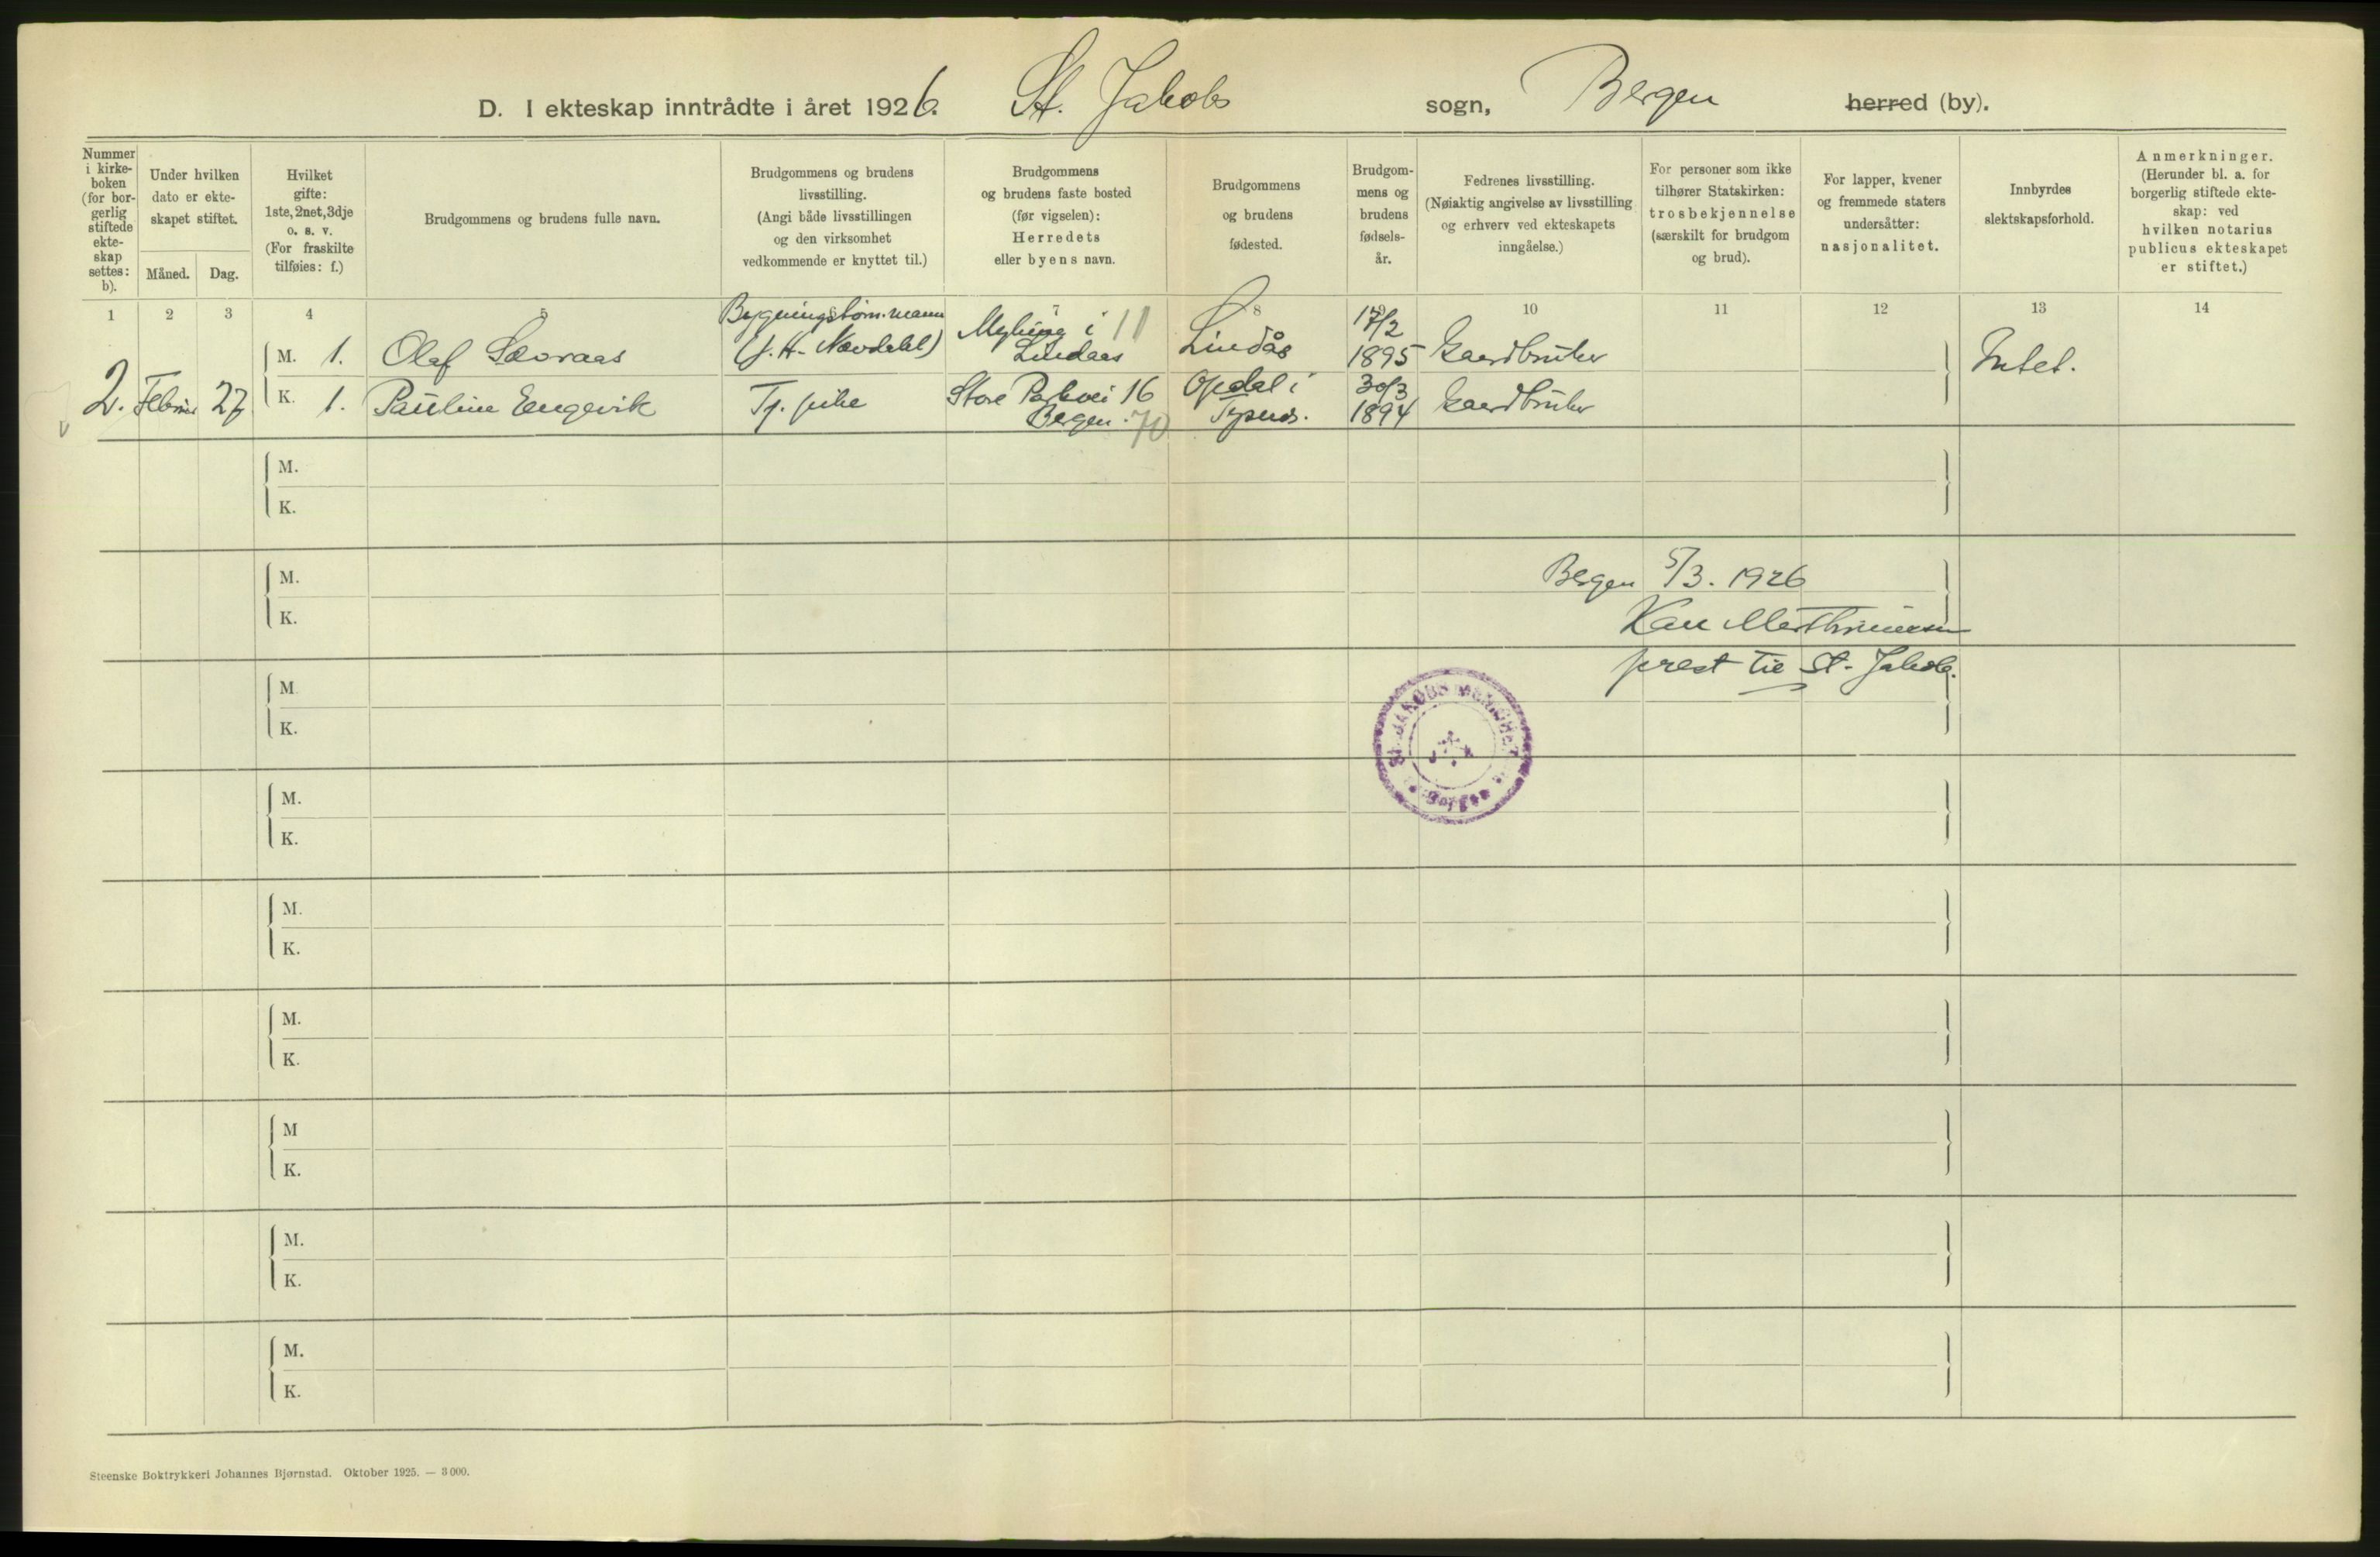 D. I ekteskap inntrådte i året 1926. St. Jakobs sogn, Bergen herred (by).
Nummer i kirke-boken (for bor-gerlig stiftede ekte-skap settes: b).
Under hvilken dato er ekte-skapet stiftet.
Måned. Dag.
Hvilket gifte: 1ste, 2net, 3dje o. s. v. (For fraskilte tilføies: f.)
Brudgommens og brudens fulle navn.
Brudgommens og brudens livsstilling. (Angi både livsstillingen og den virksomhet vedkommende er knyttet til.)
Brudgommens og brudens faste bosted (før vigselen): Herredets eller byens navn.
Brudgommens og brudens fødested.
Brudgom-mens og brudens fødsels-år.
Fedrenes livsstilling. (Nøiaktig angivelse av livsstilling og erhverv ved ekteskapets inngåelse.)
For personer som ikke tilhører Statskirken: trosbekjennelse (særskilt for brudgom og brud).
For lapper, kvener og fremmede staters undersåtter: nasjonalitet.
Innbyrdes slektskapsforhold.
Anmerkninger. (Herunder bl. a. for borgerlig stiftede ekte-skap: ved hvilken notarius publicus ekteskapet er stiftet.)
1 2 3 4 5 6 7 8 9 10 11 12 13 14
M. 1. Olaf Sævraas Bygningstøm.mann (J. H. Nævdahl) Myking i Lindaas 11 Lindås 17/2 1895 Gaardbruker Intet.
2. Februar 27 K. 1. Pauline Engevik Tj. pike Store Parkvei 16 Bergen. 70 Opdal i Tysnes. 30/3 1894 Gaardbruker
M.
K.
M. Bergen 5/3. 1926
K.
prest til St. Jakob.
M.
K.
ST. JAKOBS MENIGHET
M.
K.
M.
K.
M.
K.
M
K.
M.
K.
M.
K.
Steenske Boktrykkeri Johannes Bjørnstad. Oktober 1925. — 3 000.